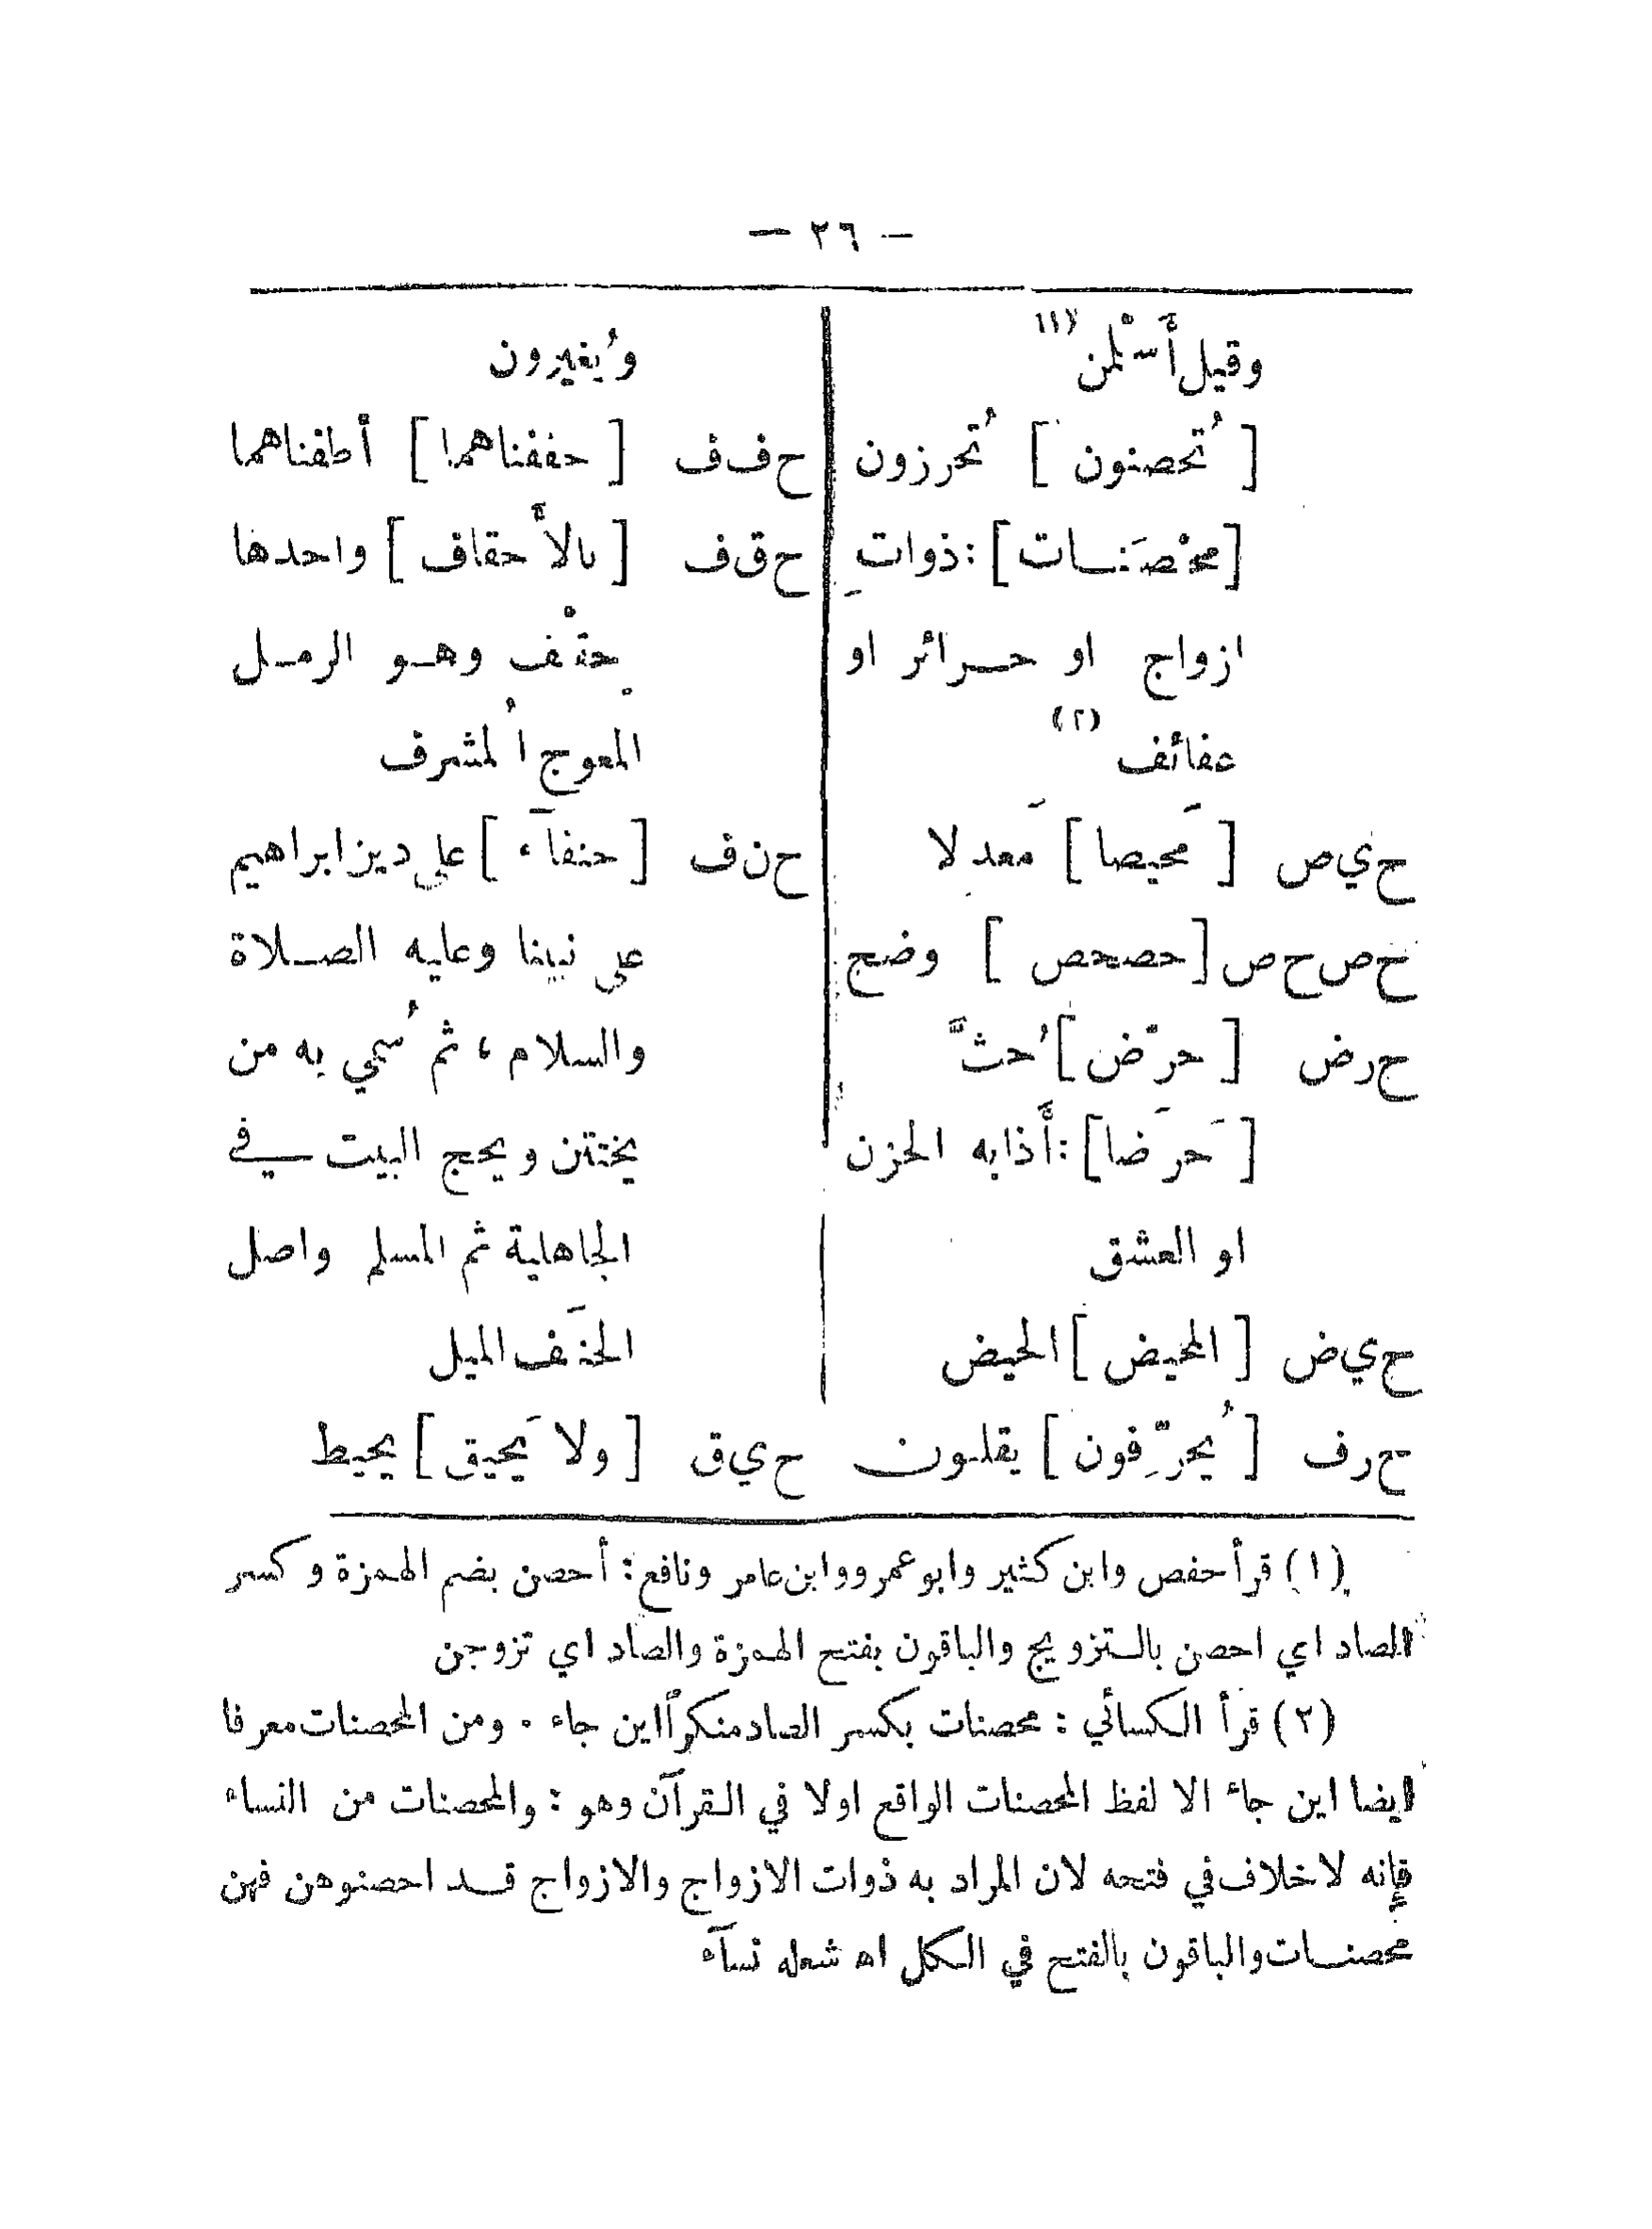 — ٢٦ —
وقيل أَسْلمن (١)
[ تُحصنون ] تُحرزون
[محْصَنـات] : ذواتِ
ازواج او حـرائر او
عفائف (٢)
ح‌ي‌ص [ مَحيصا ] مَعدلا
ح‌ص‌ح‌ص [حصحص ] وضح
ح‌ر‌ض [ حرّض ] حُثَّ
[ حَرَضا] : أَذابه الحزن
او العشق
ح‌ي‌ض [ المحيض ] الحيض
ح‌ر‌ف [ يُحرِّفون ] يقلبون
ويُغيرون
ح‌ف‌ف [ حففناهما ] أطفناهما
ح‌ق‌ف [ بالأَحقاف ] واحدها
حِقْف وهـو الرمـل
المعوج المُشرف
ح‌ن‌ف [ حنفآء ] على دين ابراهيم
على نبينا وعليه الصـلاة
والسلام ، ثم سُمي به من
يختتن ويحج البيت في
الجاهلية ثم المسلم واصل
الحنَف الميل
ح‌ي‌ق [ ولا يَحيق ] يحيط
(١) قرأ حفص وابن كثير وابو عمرو وابن عامر ونافع : أحصن بضم الهمزة وكسر
الصاد اي احصن بالتزويج والباقون بفتح الهمزة والصاد اي تزوجن
(٢) قرأ الكسائي : محصنات بكسر الصاد منكراً اين جاء . ومن المحصنات معرفا
ايضا اين جاء الا لفظ المحصنات الواقع اولا في القرآن وهو : والمحصنات من النساء
فإنه لا خلاف في فتحه لان المراد به ذوات الازواج والازواج قـد احصنوهن فهن
محصنـات والباقون بالفتح في الكل اه شعله نسآء